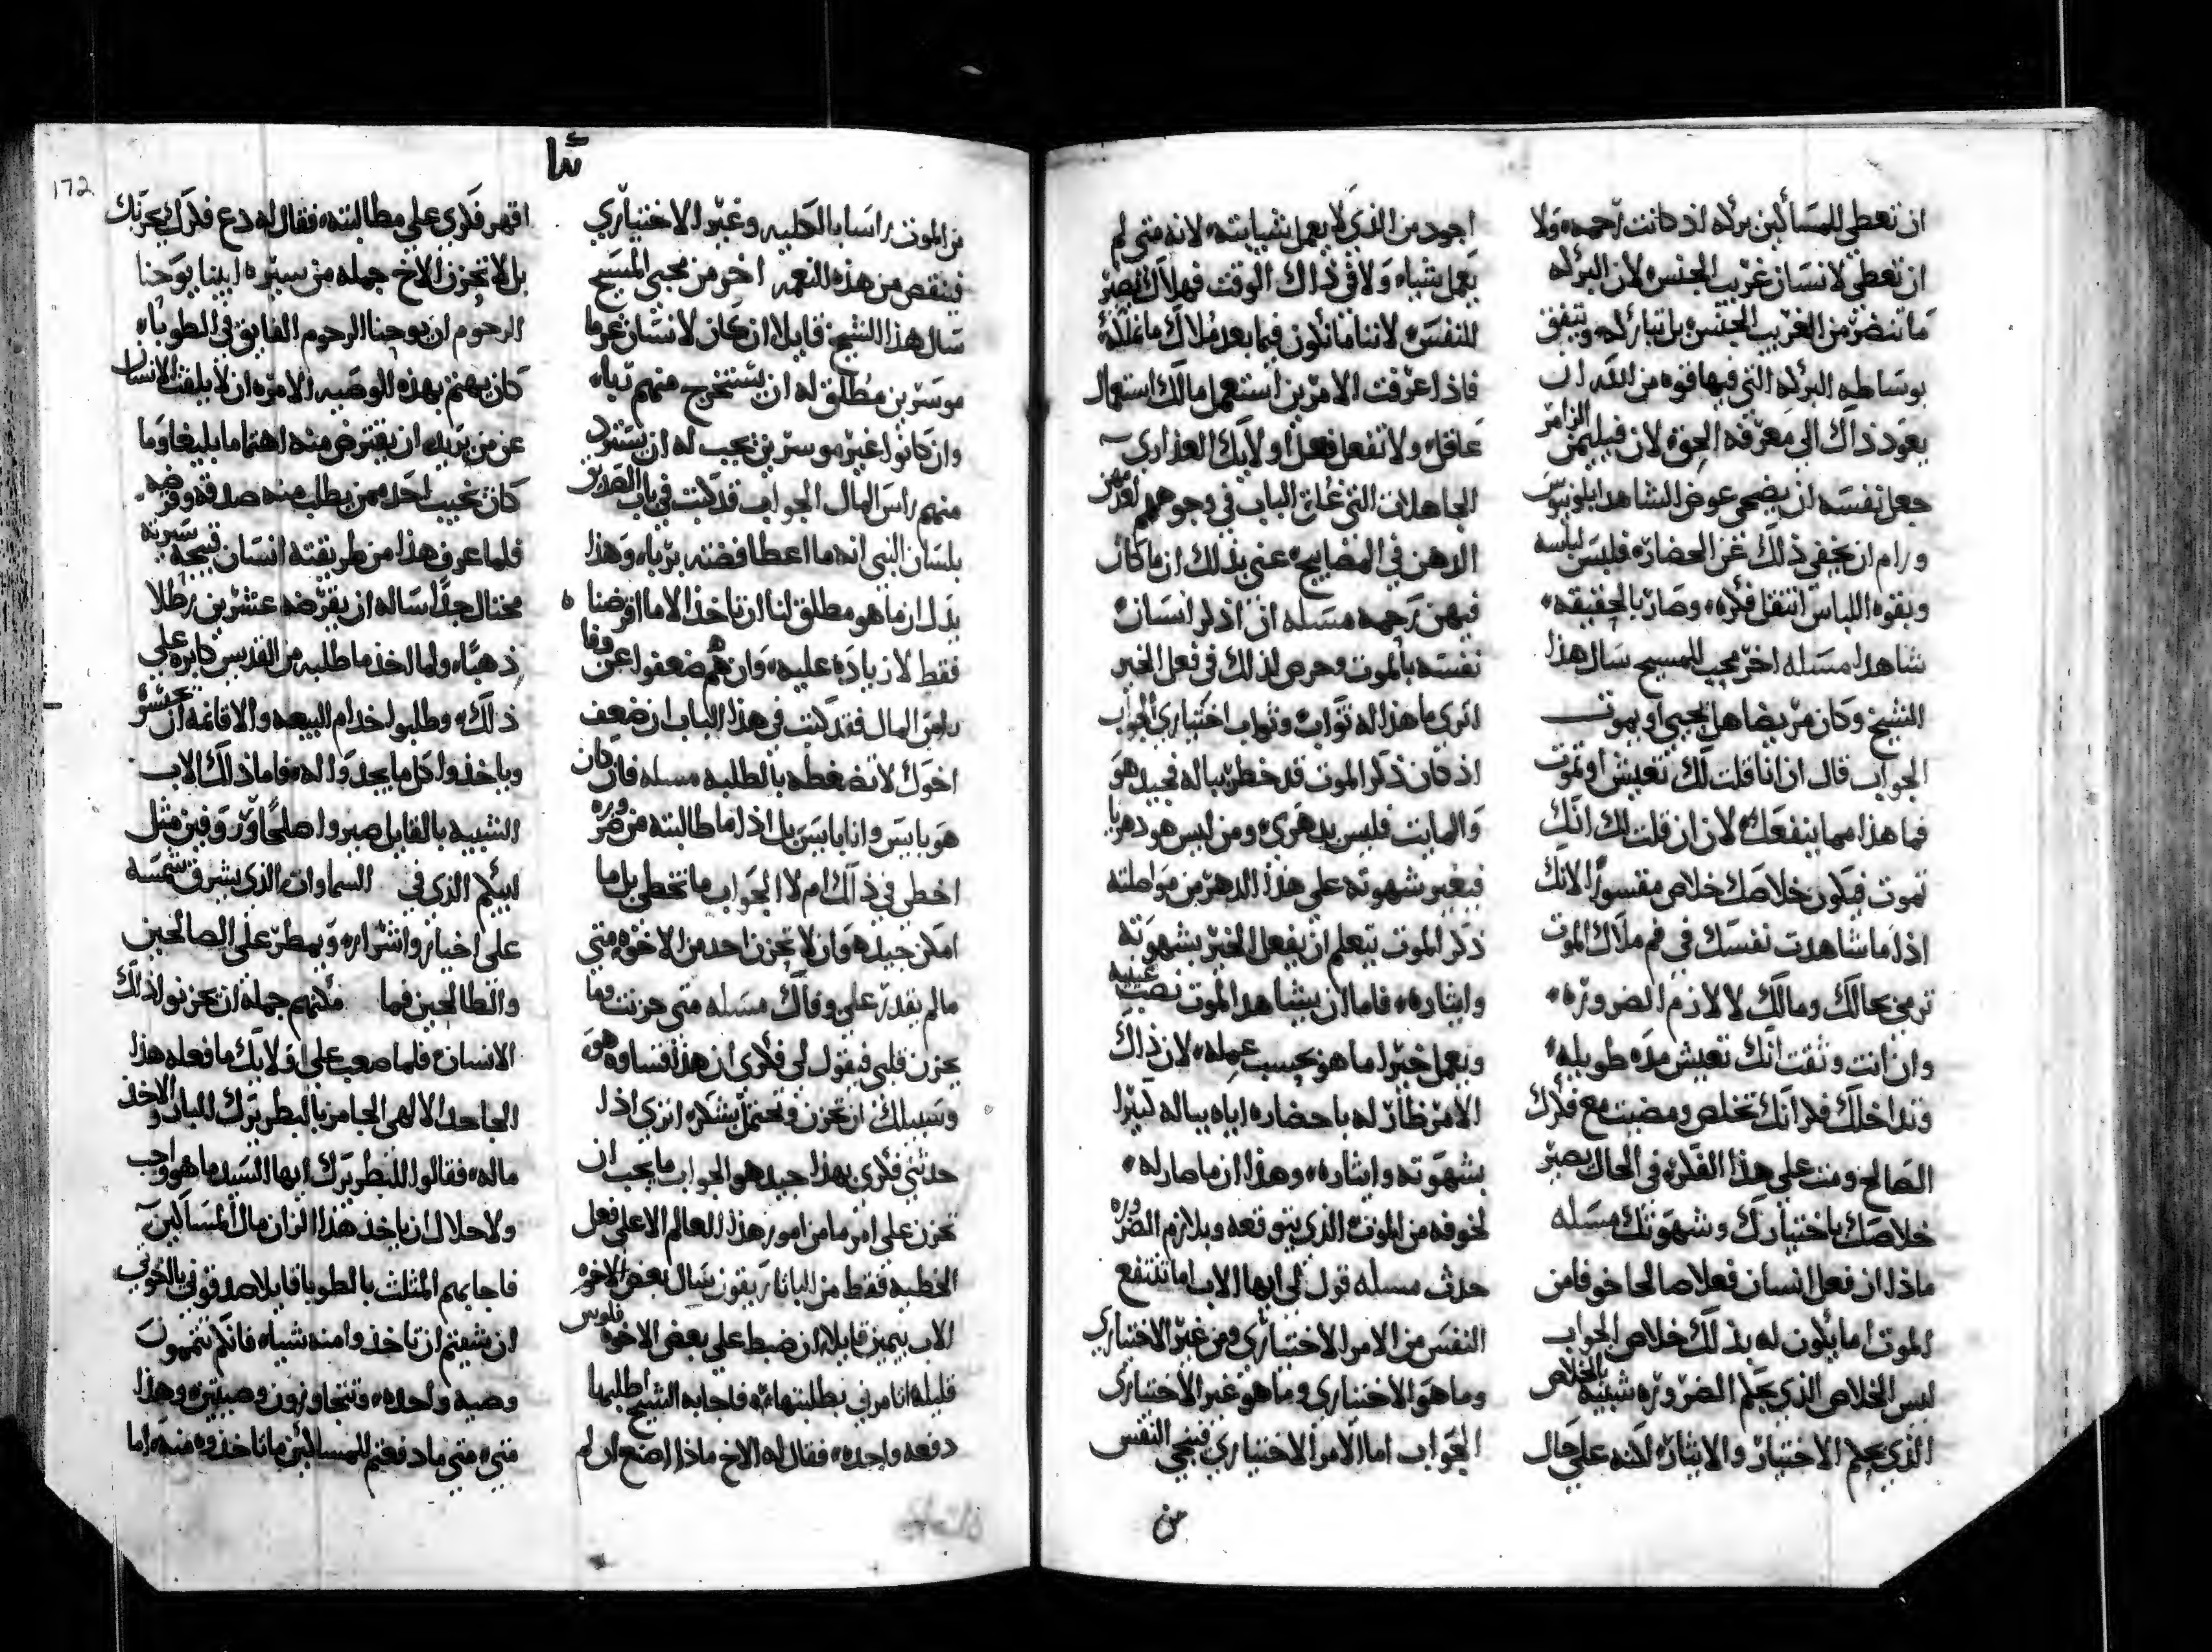 ان تعطي للمساكين بركه اذ كانت رحمه ولا
ان تعطي لانسان غريب الجنس لان البركه
ما تنضر من الغريب الجنس بل تباركه ويتفق
بوساطه البركه التي فيها قوه من الله ان
يعود ذاك الى معرفه الحق لان فيليمن الزامر
جعل نفسه ان يضحي عوض الشاهد ابلونيوس
ورام ان يخفي ذلك عن الحضاره فلبس لباسه
وبقوه اللباس انتقل فكره وصار بالحقيقه
شاهدا مسله اخر محب للمسيح سال هذا
الشيخ وكان مريضا هل يحيى او يموت
الجواب قال ان انا قلت لك تعيش او تموت
فما هذا مما ينفعك لان ان قلت لك انك
تموت فيكون خلاصك خلاص مقسورا لانك
اذا ما شاهدت نفسك في فم ملاك الموت
ترمي بحالك ومالك لا لازم الضروره
وان انت وثقت انك تعيش مده طويله
وتداخلك فكر انك تخلص ومضيت مع فكرك
الصالح ومت على هذا الفكره في الحال يصير
خلاصك باختيارك وشهوتك مسله
ماذا ان فعل انسان فعلا صالحا خوفا من
الموت اما يكون له بذلك خلاص الجواب
ليس الخلاص الذي بحكم الضروره شبيه بالخلاص
الذي بحكم الاختيار والايثاره لكنه على حال
اجود من الذي لا يعمل شيا بته لانه متى لم
يعمل شياه ولا في ذاك الوقت فهلاك يصير
للنفس لاننا ما نكون فيما بعد ملاك ما نملكه
فاذا عرفت الامرين استعمل مالك استعمال
عاقل ولا تفعل فعل اولايك العذارى
الجاهلات التي غلق الباب في وجوههم
الاهن في المصابيح عنى بذلك ان ما كان
فيهن رحمه مسله ان اذكر انسان
نفسه بالموت وحرص لذلك في فعل الخير
اترى ما هذا له ثواب وثواب اختياري الجواب
اذ كان ذكر الموت قد خطر بباله فجيد هو
والمايت فليس بدهري ومن ليس هو دهريا
فبغير شهوته على هذا الدهر من مواصلته
ذكر الموت يتعلم ان يفعل الخير بشهوته
وايثاره فاما ان يشاهد الموت نصب عينيه
ويعمل خيرا ما هو بحسب عمله لان ذاك
الامر ظار له باحضاره اياه بباله كثيرا
بشهوته وايثاره وهذا ان ما صار له
لخوفه من الموت الذي يتوقعه ويلازم الضروره
حدث مسله قول لي ايها الاب اما تنتفع
النفس من الامر الاختياري ومن غير الاختياري
وما هو الاختياري وما هو غير الاختياري
الجواب اما الامر الاختياري فينجي النفس
من
ثنا
172
من الموت راسا بالكليه وغير الاختياري
فينقص من هذه النعمه اخر من محبي المسيح
سال هذا الشيخ قايلا ان كان لانسان غرما
موسرين مطلق له ان يستخرج منهم رباه
وان كانوا غير موسرين يجب له ان يسترد
منهم راس المال الجواب قد كتب في باب الصديق
بلسان النبي انه ما اعطا فضته بربا وهذا
يدل ان ما هو مطلق لنا ان ناخذ الا ما اقرضنا
فقط لا زياده عليه وان هم ضعفوا عن وفا
راس المال فقد كتب في هذا الباب ان ضعف
اخوك لا تضغطه بالطلبه مسله فان كان
هو يابس وانا يابس بل اذا ما طالبته من ضروره
اخطي في ذلك ام لا الجواب ما تخطي بل ما
امكن جيد هو ان لا تحزن احد من الاخوه متى
مالم يقدر على وفاك مسله متى حزنت وما
يحزن قلبي فيقول لي فكري ان هذا قساوه هو
وسبيلك ان تحزن وتحتمل بشكر اترى اذا
حدثني فكري بهذا جيد هو الجواب ما يجب ان
تحزن على امر ما من امور هذا العالم الا على فعل
الخطيه فقط من الباتاريقون سال بعض الاخوه
الاب بيمين قايلا ان ضبط علي بعض الاخوه فلوس
قليله اتامرني بطلبتها فاجابه الشيخ اطلبها
دفعه واحده فقال له الاخ ماذا اصنع ان لم
اقهر فكري على مطالبته فقال له دع فكرك يحزنك
بل لا تحزن الاخ جمله من سيره ابينا يوحنا
الرحوم ان يوحنا الرحوم الفايق في الطوباه
كان يهتم بهذه الوصيه الامره ان لا يلفت الانسان
عن من يريد ان يقترض منه اهتماما بليغا وما
كان يخيب احد ممن يطلب منه صدقه وقرضه
فلما عرف هذا من طريقته انسان قبيحه سيرته
محتال جدا ساله ان يقرضه عشرين رطلا
ذهبا ولما اخذ ما طلبه من القديس كابره على
ذلك وطلبوا خدام البيعه والاقانمه ان يحبسوه
وياخذوا كل ما يجدوا له فاما ذلك الاب
الشبيه بالقايل صيروا صلحا ورووفين مثل
ابيكم الذي في السماوات الذي يشرق شمسه
على اخيار واشراره ويمطر على الصالحين
والطالحين فما مكنهم جمله ان يحزنوا ذلك
الانسان فلما صعب على اولايك ما فعله هذا
الجاحد الالهي الجا من بالبطريرك للبار والاخذ
ماله فقالوا للبطريرك ايها السيد ما هو واجب
ولا حلال ان ياخذ هذا الزان مال المساكين
فاجابهم المثلث بالطوبا قايلا صدقوني يا اخوتي
ان شيتم ان تاخذوا منه شياه فانكم تتممون
وصيه واحده وتتجاوزون وصيتين وهذا
متى ما دفعتم للمساكين ما تاخذوه منه اما